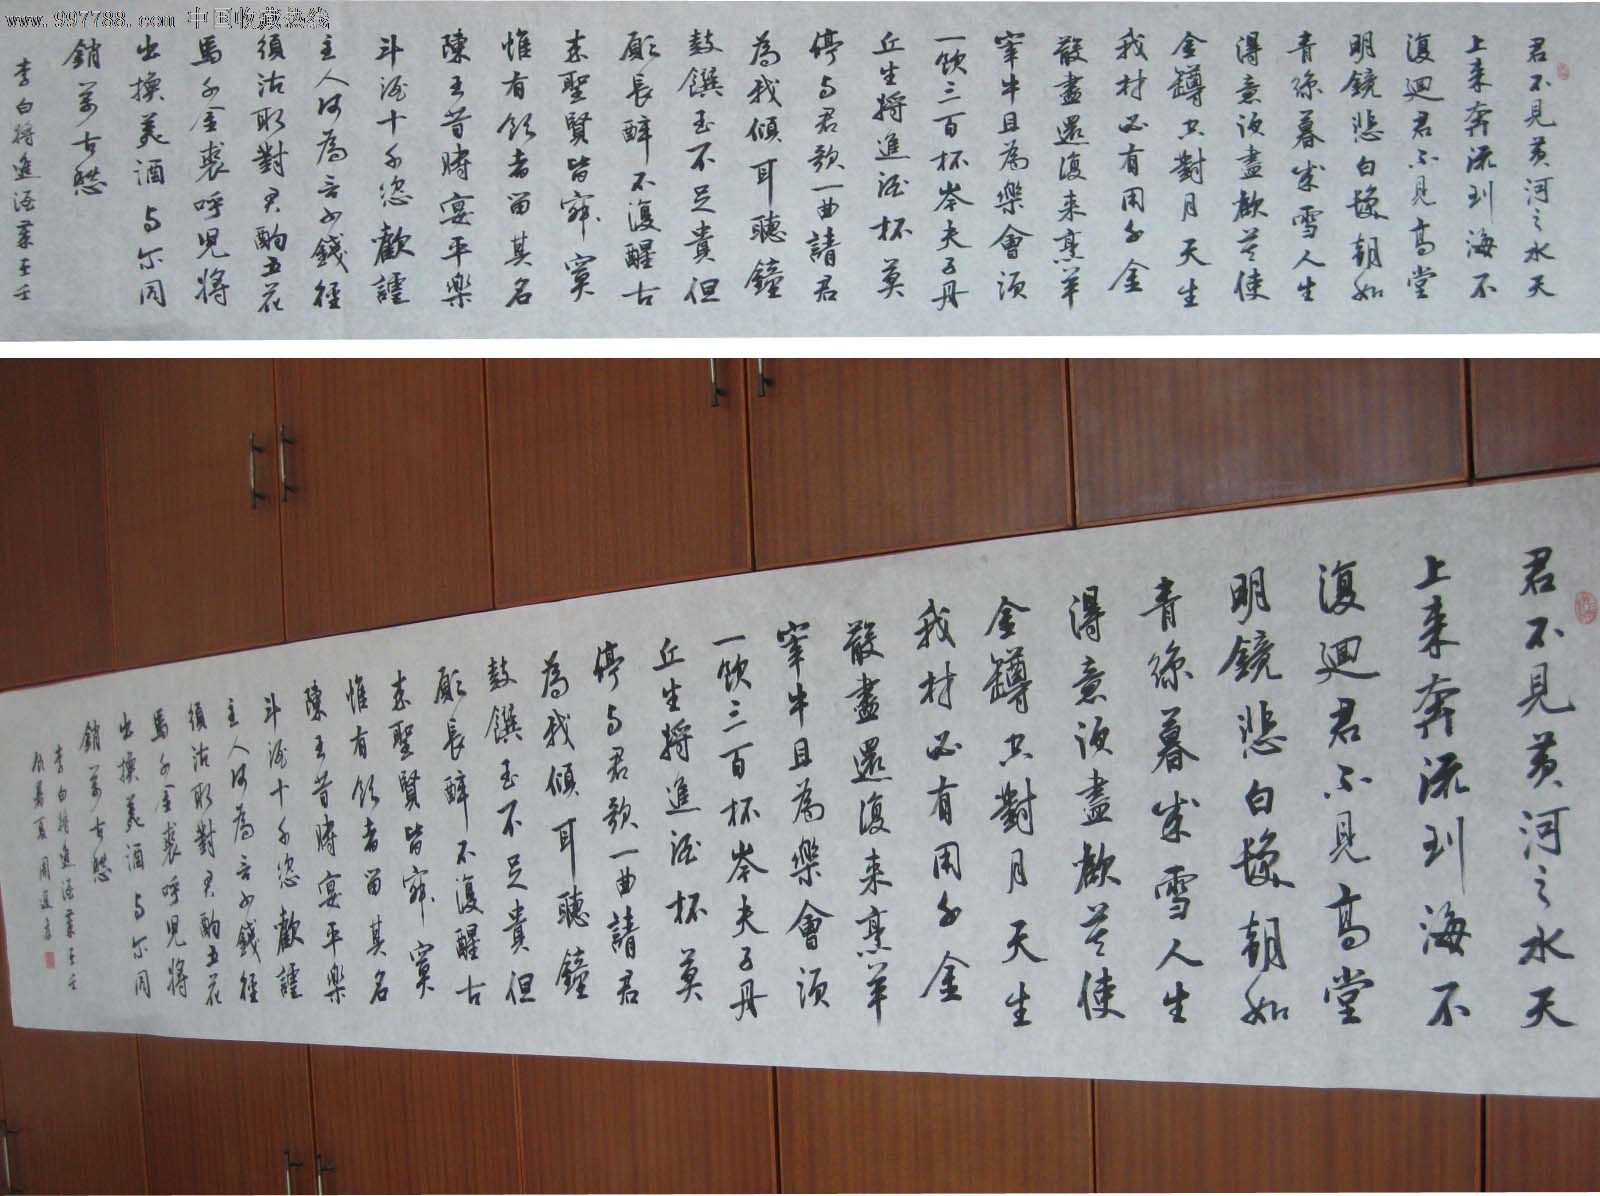 www.997788.com 中国收藏热线
君不見黃河之水天
上來奔流到海不
復迴君不見高堂
明鏡悲白髮朝如
青絲暮成雪人生
得意須盡歡莫使
金罇空對月天生
我材必有用千金
散盡還復來烹羊
宰牛且為樂會須
一飲三百杯岑夫子丹
丘生將進酒杯莫
停與君歌一曲請君
為我傾耳聽鐘
鼓饌玉不足貴但
願長醉不復醒古
來聖賢皆寂寞
惟有飲者留其名
陳王昔時宴平樂
斗酒十千恣歡謔
主人何為言少錢徑
須沽取對君酌五花
馬千金裘呼兒將
出換美酒與爾同
銷萬古愁
李白將進酒
君不見黃河之水天
上來奔流到海不
復迴君不見高堂
明鏡悲白髮朝如
青絲暮成雪人生
得意須盡歡莫使
金罇空對月天生
我材必有用千金
散盡還復來烹羊
宰牛且為樂會須
一飲三百杯岑夫子丹
丘生將進酒杯莫
停與君歌一曲請君
為我傾耳聽鐘
鼓饌玉不足貴但
願長醉不復醒古
來聖賢皆寂寞
惟有飲者留其名
陳王昔時宴平樂
斗酒十千恣歡謔
主人何為言少錢徑
須沽取對君酌五花
馬千金裘呼兒將
出換美酒與爾同
銷萬古愁
李白將進酒